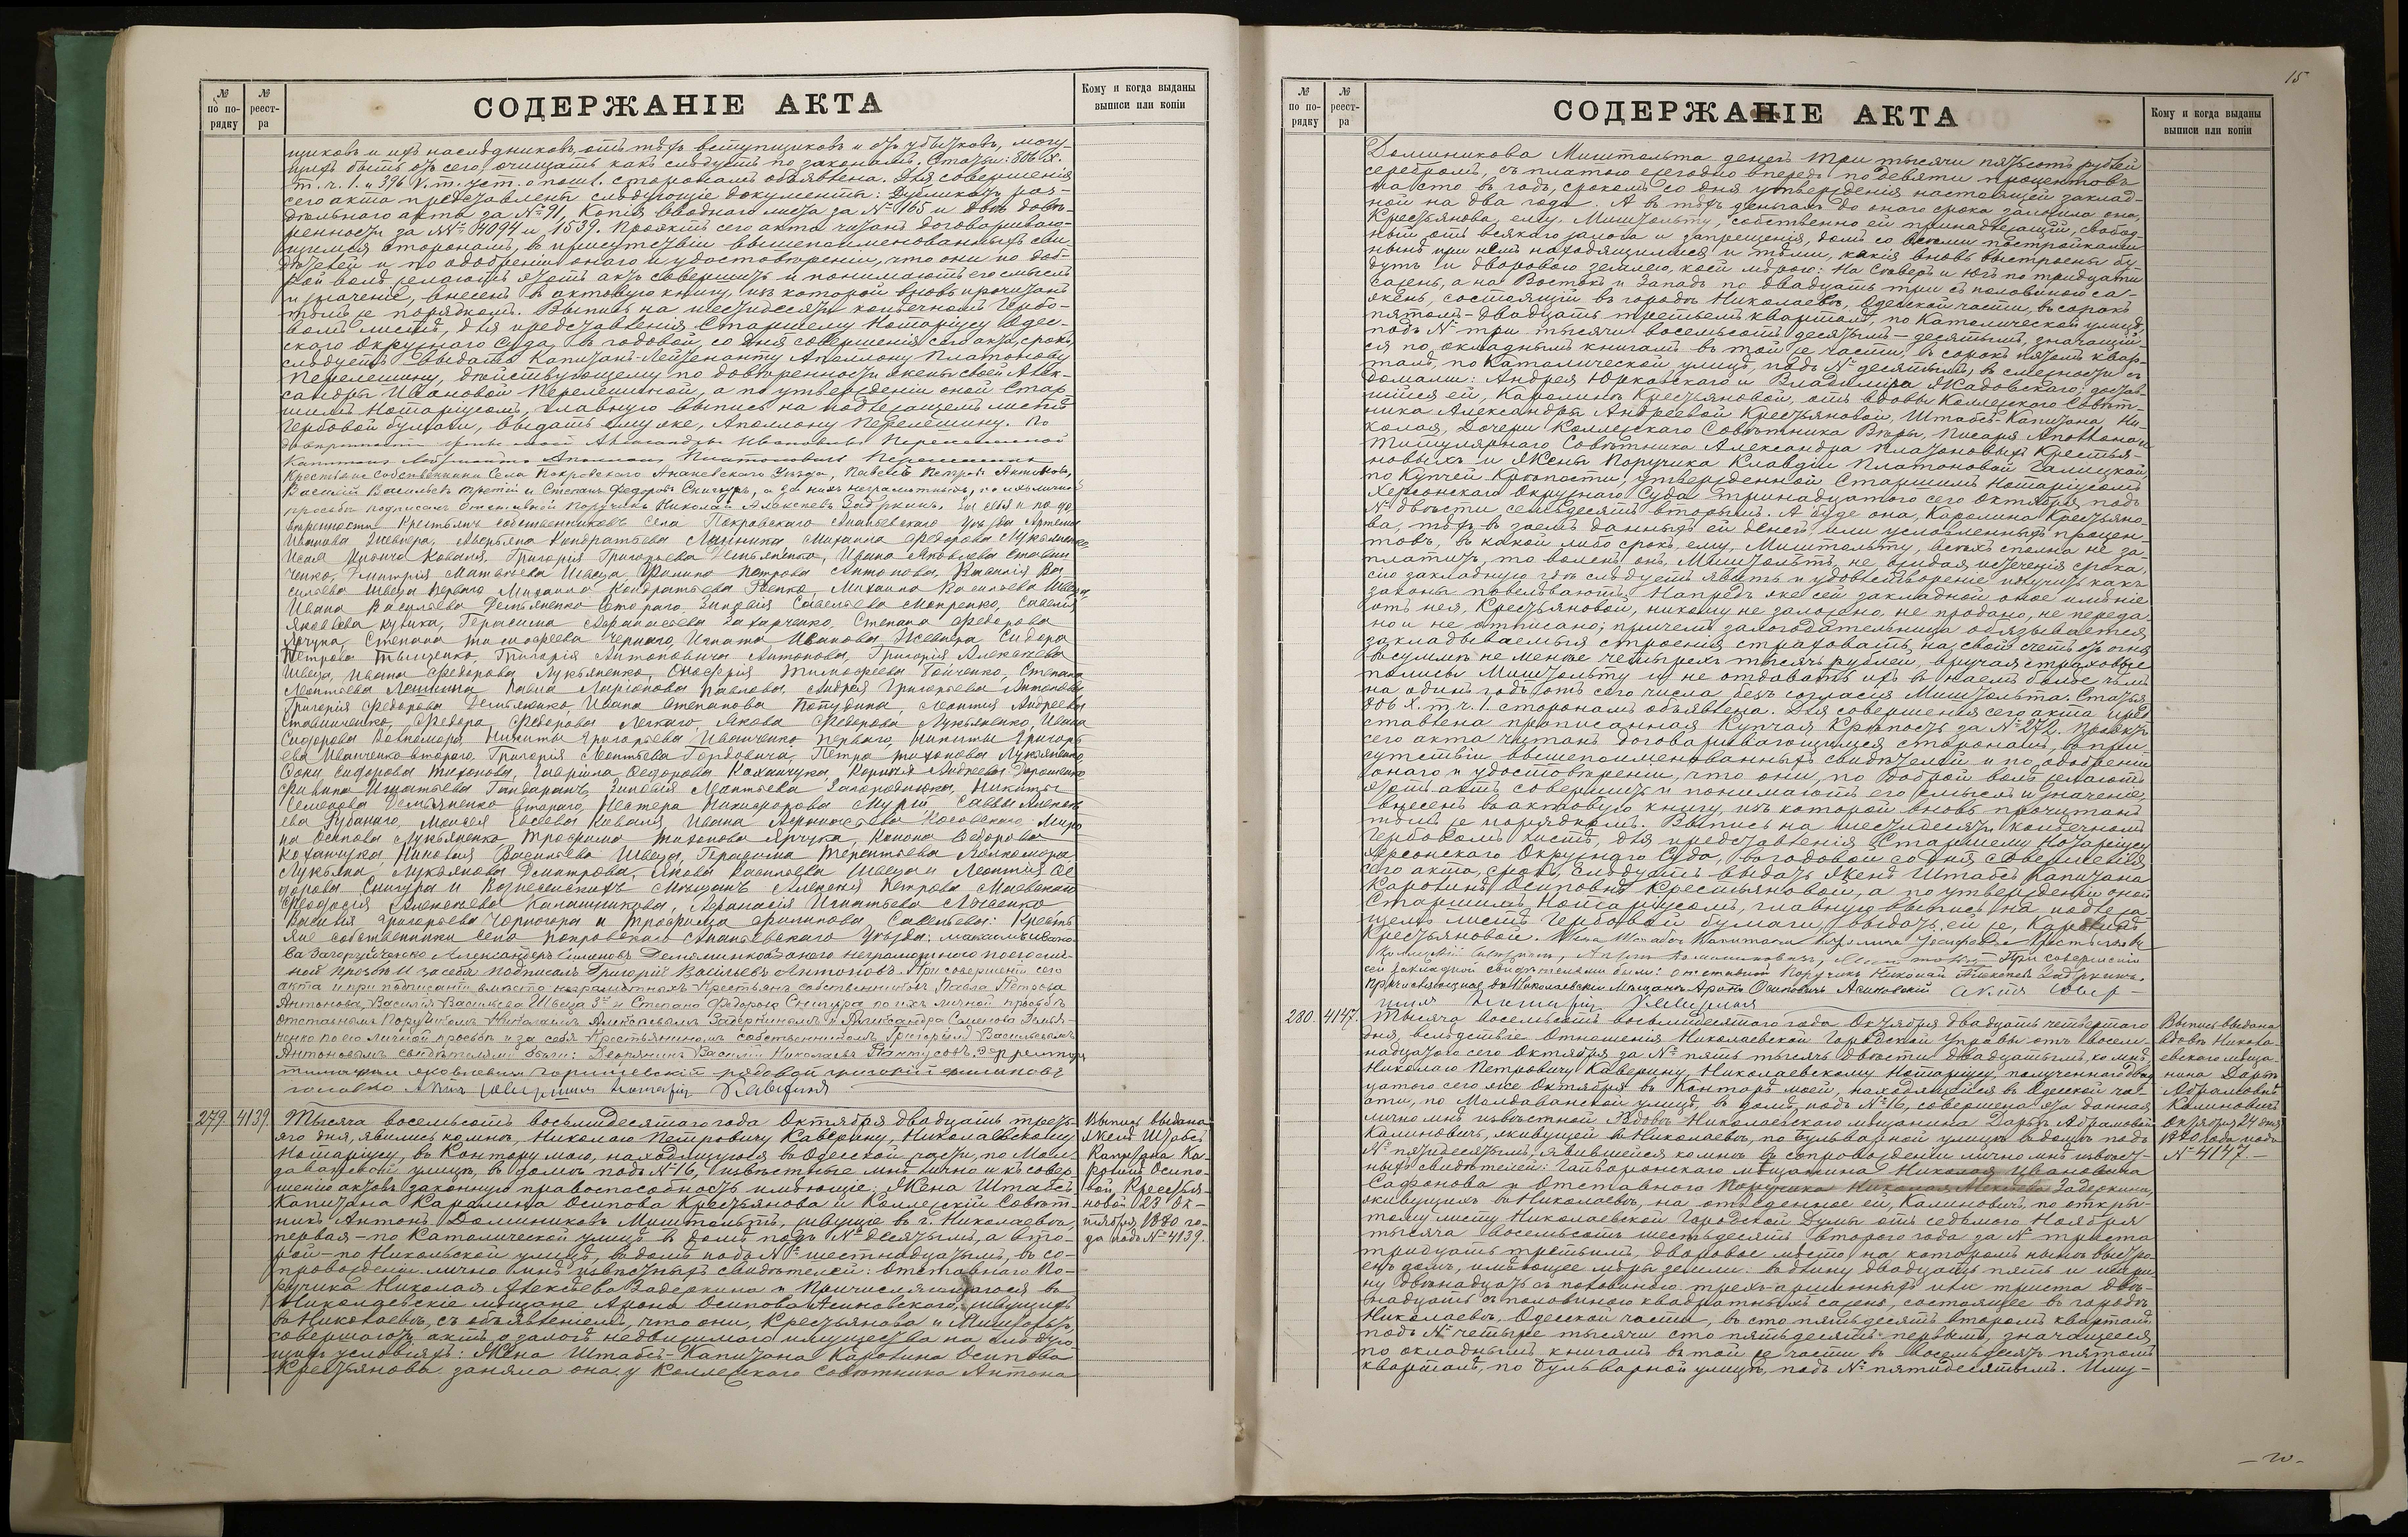 № по порядку
№ реестра
СОДЕРЖАНІЕ АКТА
Кому и когда выданы выписи или копіи
щиковъ и ихъ наслѣдниковъ, отъ тѣхъ вступщиковъ и отъ убытковъ, могу-
щихъ быть отъ сего, очищать какъ слѣдуетъ по законамъ. Статьи: 806 X.
т. ч. 1. и 396 V. т. уст. о пошл. сторонамъ объявлена. Для совершенія
сего акта представлены слѣдующіе документы: Дубликатъ раз-
дѣльнаго акта за № 91, Копія вводнаго листа за № 165 и двѣ довѣ-
ренности за №№ 4094 и 1539. Проэктъ сего акта читанъ договариваю-
щимся сторонамъ, въ присутствіи вышепоименованныхъ сви-
дѣтелей и по одобреніи онаго и удостовѣреніи, что они по доб-
рой волѣ желаютъ этотъ актъ совершить и понимаютъ его смыслъ
и значеніе, внесенъ въ актовую книгу, изъ которой вновь прочитанъ
тѣмъ же порядкомъ. Выпись на шестидесяти копѣечномъ гербо-
вомъ листѣ, для представленія Старшему Нотаріусу Одес-
скаго Окружнаго Суда, въ годовой, со дня совершенія сего акта, срокъ,
слѣдуетъ выдать Капитанъ-Лейтенанту Аполлону Платонову
Перелешину, дѣйствующему по довѣренности жены своей Алек-
сандры Ивановой Перелешиной, а по утвержденіи оной Стар-
шимъ Нотаріусомъ, главную выпись на подлежащемъ листѣ
гербовой бумаги, выдать ему же, Аполлону Перелешину. По
довѣренности жены моей Александры Ивановны Перелешиной
Капитанъ Лейтенантъ Аполлонъ Платоновичъ Перелешинъ
Крестьяне собственники Села Покровскаго Ананьевскаго Уѣзда, Павелъ Петровъ Антоновъ,
Василій Васильевъ третій и Степанъ Федоровъ Снигуръ, а за нихъ неграмотныхъ, по ихъ личной
просьбѣ подписалъ Отставной Поручикъ Николай Алексѣевъ Задеркинъ. За себя и по до-
вѣренности Крестьянъ собственниковъ села Покровскаго Ананьевскаго Уѣзда Артема
Григорія Григорьева Демьяненка, Ивана Яковлева
Дмитрія Матвѣева Швеца, Филипа Петрова Антонова,
силева Швеца перваго, Михаила Кондратьева Михаила Васильева Швеца,
Ивана Васильева Демьяненко второго, Зиновія Савельева Савелія
Яковлева Герасима Афанасьева Захарченко, Степана Федорова
Ярчука, Степана Тимофеева Чернаго, Игната Иванова Сидора
Петрова Тыщенко, Григорія Антоновича Антонова, Григорія Алексѣева
Швеца, Ивана Федорова Лукьяненко, Онофрія Тимофеева Бойченко, Степана
Павла Ларіонова Павлова, Андрея Григорьева Антонова,
Григорія Федорова Демьяненко, Ивана Степанова Леонтія Андреева
Федора Федорова Легкаго, Якова Федорова Лукьяненко, Ивана
Сидорова Никиты Григорьева Иванченко перваго, Никиты Григорь-
ева Иванченко второго, Григорія Леонтьева Петра Тихонова Лукьяненко,
Фоки Сидорова Тихонова, Гавріила Федорова Каханчука, Корнилія Андреева Дорошенко,
Филипа Игнатьева Зиновія Леонтьева Никиты
Семенова Демьяненко второго, Нестера Никифорова Саввы
Моисея Евсеева Коваля, Ивана
на Осипова Лукьяненка, Трофима Тихонова Ярчука, Конона Федорова
Коханчука, Николая Васильева Швеца, Герасима Терентьева
Лукьяна Лукьянова Димитрова, Якова Васильева Швеца и Леонтія Фе-
дорова Снигура и Вознесенскихъ Мѣщанъ Алексѣя Петрова
Феодосія Алексѣева Афанасія Игнатьева
Василія Григорьева Черногора и Трофима Филипова Савельева: Кресть-
яне собственники села Покровскаго Ананьевскаго Уѣзда: Максимъ
ва Загоруйченко Александеръ Семеновъ Демяненко за него неграмотного по его лич-
ной просьбѣ и за себя подписалъ Григорій Васильевъ Антоновъ. При совершеніи сего
акта и при подписаніи вмѣсто неграмотныхъ Крестьянъ собственниковъ Павла Петрова
Антонова, Василія Васильева Швеца 3го и Степана Федорова Снигура по ихъ личной просьбѣ
отставнымъ Поручикомъ Николаемъ Алексѣевымъ Задеркинымъ и Александра Семенова Демья-
ненко по его личной просьбѣ и за себя Крестьяниномъ собственникомъ Григоріемъ Васильевымъ
Антоновымъ свидѣтелями были: Дворянинъ Василій Николаевъ
рядовой Григорій Филиповъ
Актъ совершилъ Нотаріусъ Каверинъ
279. 4139.
Тысяча восемьсотъ восьмидесятаго года Октября двадцать треть-
яго дня, явились ко мнѣ, Николаю Петровичу Каверину, Николаевскому
Нотаріусу, въ Контору мою, находящуюся въ Одесской части, по Мол-
даванской улицѣ, въ домѣ подъ № 16, извѣстные мнѣ лично и къ совер-
шенію актовъ законную правоспособность имѣющіе: Жена Штабсъ-
Капитана Каролина Осипова Крестьянова и Коллежскій Совѣт-
никъ Антонъ Доминиковъ Миштольтъ, живущіе въ г. Николаевѣ,
первая - по Католической улицѣ въ домѣ подъ № десятымъ, а вто-
рой - по Никольской улицѣ, въ домѣ подъ № шестнадцатымъ, въ со-
провожденіи лично мнѣ извѣстныхъ свидѣтелей: Отставнаго По-
ручика Николая Алексѣева Задеркина и Причисляющагося въ
Николаевскіе мѣщане Арона Осипова Асиновскаго, живущихъ
въ Николаевѣ, съ объявленіемъ, что они, Крестьянова и Миштольтъ,
совершаютъ актъ о залогѣ недвижимаго имущества на слѣдую-
щихъ условіяхъ: Жена Штабсъ-Капитана Каролина Осипова
Крестьянова заняла она у Коллежскаго Совѣтника Антона
Выпись выдана
Женѣ Штабсъ
Капитана Ка-
ролинѣ Осипо-
вой Крестья-
новой 23 Ок-
тября 1880 го-
да подъ № 4139.
15
№ по порядку
№ реестра
СОДЕРЖАНІЕ АКТА
Кому и когда выданы выписи или копіи
Доминикова Миштольта денегъ три тысячи пятьсотъ рублей
серебромъ, съ платою ежегодно впередъ по девяти процентовъ
на сто въ годъ, срокомъ со дня утвержденія настоящей заклад-
ной на два года. А въ тѣхъ деньгахъ до онаго срока заложила она,
Крестьянова, ему, Миштольту, собственно ей принадлежащій, свобод-
ный отъ всякаго залога и запрещенія, домъ со всѣми постройками
нынѣ при немъ находящимися и тѣми, какія вновь выстроены бу-
дутъ и дворовою землею, коей мѣрою: на Сѣверъ и Югъ по тридцати
сажень, а на Востокъ и Западъ по двадцать три съ половиною са-
жень, состоящій въ городѣ Николаевѣ, Одесской части, въ сорокъ
пятомъ - двадцать третьемъ кварталѣ, по Католической улицѣ,
подъ № три тысячи восемьсотъ десятымъ - десятымъ, значащій-
ся по окладнымъ книгамъ въ той же части, въ сорокъ пятомъ квар-
талѣ, по Католической улицѣ, подъ № десятымъ, въ смежности съ
домами: Андрея Юрковскаго и Владиміра Жадовскаго; достав-
шійся ей, Каролинѣ Крестьяновой, отъ вдовы Коллежскаго Совѣт-
ника Александры Андреевой Крестьяновой, Штабсъ-Капитана Ни-
колая, Дочери Коллежскаго Совѣтника Вѣры, Писаря Аполлона и
Титулярнаго Совѣтника Александра Платоновыхъ Крестья-
новыхъ и Жены Поручика Клавдіи Платоновой Галицкой,
по Купчей Крѣпости, утвержденной Старшимъ Нотаріусомъ
Херсонскаго Окружнаго Суда тринадцатаго сего Октября подъ
№ двѣсти семьдесятъ вторымъ. А буде она, Каролина Крестьяно-
ва, тѣхъ въ заемъ данныхъ ей денегъ, или условленныхъ процен-
товъ, въ какой либо срокъ, ему, Миштольту, всѣхъ сполна не за-
платитъ, то воленъ онъ, Миштольтъ, не ожидая истеченія срока,
сію закладную гдѣ слѣдуетъ явить и удовлетвореніе получить какъ
законы повелѣваютъ. Напредъ же сей закладной оное имѣніе
отъ нея, Крестьяновой, никому не заложено, не продано, не переда-
но и не отписано; причемъ залогодательница обязывается
закладываемыя строенія страховать, на свой счетъ отъ огня,
въ суммѣ не менѣе четырехъ тысячъ рублей, вручая страховые
полисы Миштольту и не отдавать ихъ въ наемъ болѣе чѣмъ
на одинъ годъ отъ сего числа, безъ согласія Миштольта. Статья
806 X. т. ч. 1. сторонамъ объявлена. Для совершенія сего акта пред-
ставлена прописанная Купчая Крѣпость за № 272. Проэктъ
сего акта читанъ договаривающимся сторонамъ, въ при-
сутствіи вышепоименованныхъ свидѣтелей и по одобреніи
онаго и удостовѣреніи, что они, по доброй волѣ желаютъ
этотъ актъ совершить и понимаютъ его смыслъ и значеніе,
внесенъ въ актовую книгу, изъ которой вновь прочитанъ
тѣмъ же порядкомъ. Выпись на шестидесяти копѣечномъ
гербовомъ листѣ, для представленія Старшему Нотаріусу
Херсонскаго Окружнаго Суда, въ годовой со дня совершенія
сего акта, срокъ, слѣдуетъ выдать Женѣ Штабсъ Капитана
Каролинѣ Осиповнѣ Крестьяновой, а по утвержденіи оной
Старшимъ Нотаріусомъ, главную выпись на подлежа-
щемъ листѣ гербовой бумаги, выдать ей же, Каролинѣ
Крестьяновой. Жена Штабсъ Капитана Каролина Крестьянова
При совершеніи
сей закладной свидѣтелями были: отставной Поручикъ Николай Алексѣевъ Задеркинъ.
Причисляющійся въ Николаевскіе Мѣщане Аронъ Осиповичъ Асиновскій Актъ совер-
шилъ Нотаріусъ Каверинъ
280. 4147.
Тысяча восемьсотъ восьмидесятаго года Октября двадцать четвертаго
дня, вслѣдствіе Отношенія Николаевской Городской Управы отъ восем-
надцатаго сего Октября за № пять тысячъ двѣсти двадцатымъ, ко мнѣ,
Николаю Петровичу Каверину, Николаевскому Нотаріусу, полученнаго двад-
цатаго сего же Октября въ Конторѣ моей, находящейся въ Одесской ча-
сти, по Молдаванской улицѣ, въ домѣ подъ № 16, совершена эта данная
лично мнѣ извѣстной Вдовѣ Николаевскаго мѣщанина Дарьѣ Абрамовой
Калиновичъ, живущей въ Николаевѣ, по Бульварной улицѣ въ домѣ подъ
№ пятидесятымъ, явившейся ко мнѣ въ сопровожденіи лично мнѣ извѣст-
ныхъ свидѣтелей: Гайворонскаго мѣщанина Николая Ивановича
Сафонова и Отставнаго Поручика Николая Алексѣева Задеркина,
живущихъ въ Николаевѣ, на отведенное ей, Калиновичъ, по откры-
тому листу Николаевской Городской Думы отъ седьмого Ноября
тысяча восемьсотъ шестьдесятъ второго года за № триста
тридцать третьимъ, дворовое мѣсто на которомъ нынѣ выстро-
енъ домъ, имѣющее мѣры земли: въ длину двадцать пять и шири-
ну двѣнадцать съ половиною трехъ-аршинныхъ или триста двѣ-
надцать съ половиною квадратныхъ сажень, состоящее въ городѣ
Николаевѣ, Одесской части, въ сто пятьдесятъ второмъ кварталѣ
подъ № четыре тысячи сто пятьдесятъ первымъ, значащееся
по окладнымъ книгамъ въ той же части въ восемьдесятъ пятомъ
кварталѣ, по Бульварной улицѣ, подъ № пятидесятымъ. Иму-
Выпись выдана
Вдовѣ Никола-
евскаго мѣща-
нина Дарьѣ
Абрамовнѣ
Калиновичъ
Октября 24 дня
1880 года подъ
№ 4147 -